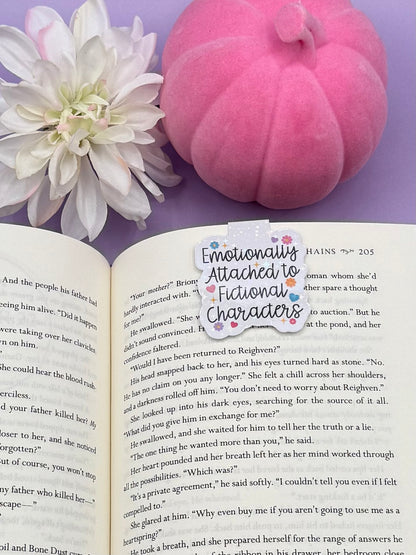 And the people his father had
seeing him alive. “Did it happen
were taking over her clavicles,
on him.
She could hear the blood rush
your father killed her? My
to her, and she noticed
forgotten?”
of course, you won’t stop
my father who killed her—”
and Bone Dust
HAINS 205
Emotionally
Attached to
Fictional
Characters
“Your mother?” woman whom she’d
hardly interacted with. spare a thought
for me?”
He swallowed. “She to auction.” But he
didn’t sound convinced. at the pond, and her
confidence faltered.
“Would I have been returned to Reighven?”
His head snapped back to her, and his eyes turned hard as stone. “No.
He has no claim on you any longer.” She felt a chill across her shoulders,
and a darkness rolled off him. “You don’t need to worry about Reighven.”
She looked up into his dark eyes, searching for the source of it all.
“What did you give him in exchange for me?”
He swallowed, and she waited for him to tell her the truth or a lie.
“The one thing he wanted more than you,” he said.
Her heart pounded and her breath left her as her mind worked through
all the possibilities. “Which was?”
“It’s a private agreement,” he said softly. “I couldn’t tell you even if I felt
compelled to.”
She glared at him. “Why even buy me if you aren’t going to use me as a
heartspring?”
He took a breath, and she prepared herself for the range of answers he
the ribbon in his drawer, her bedroom close